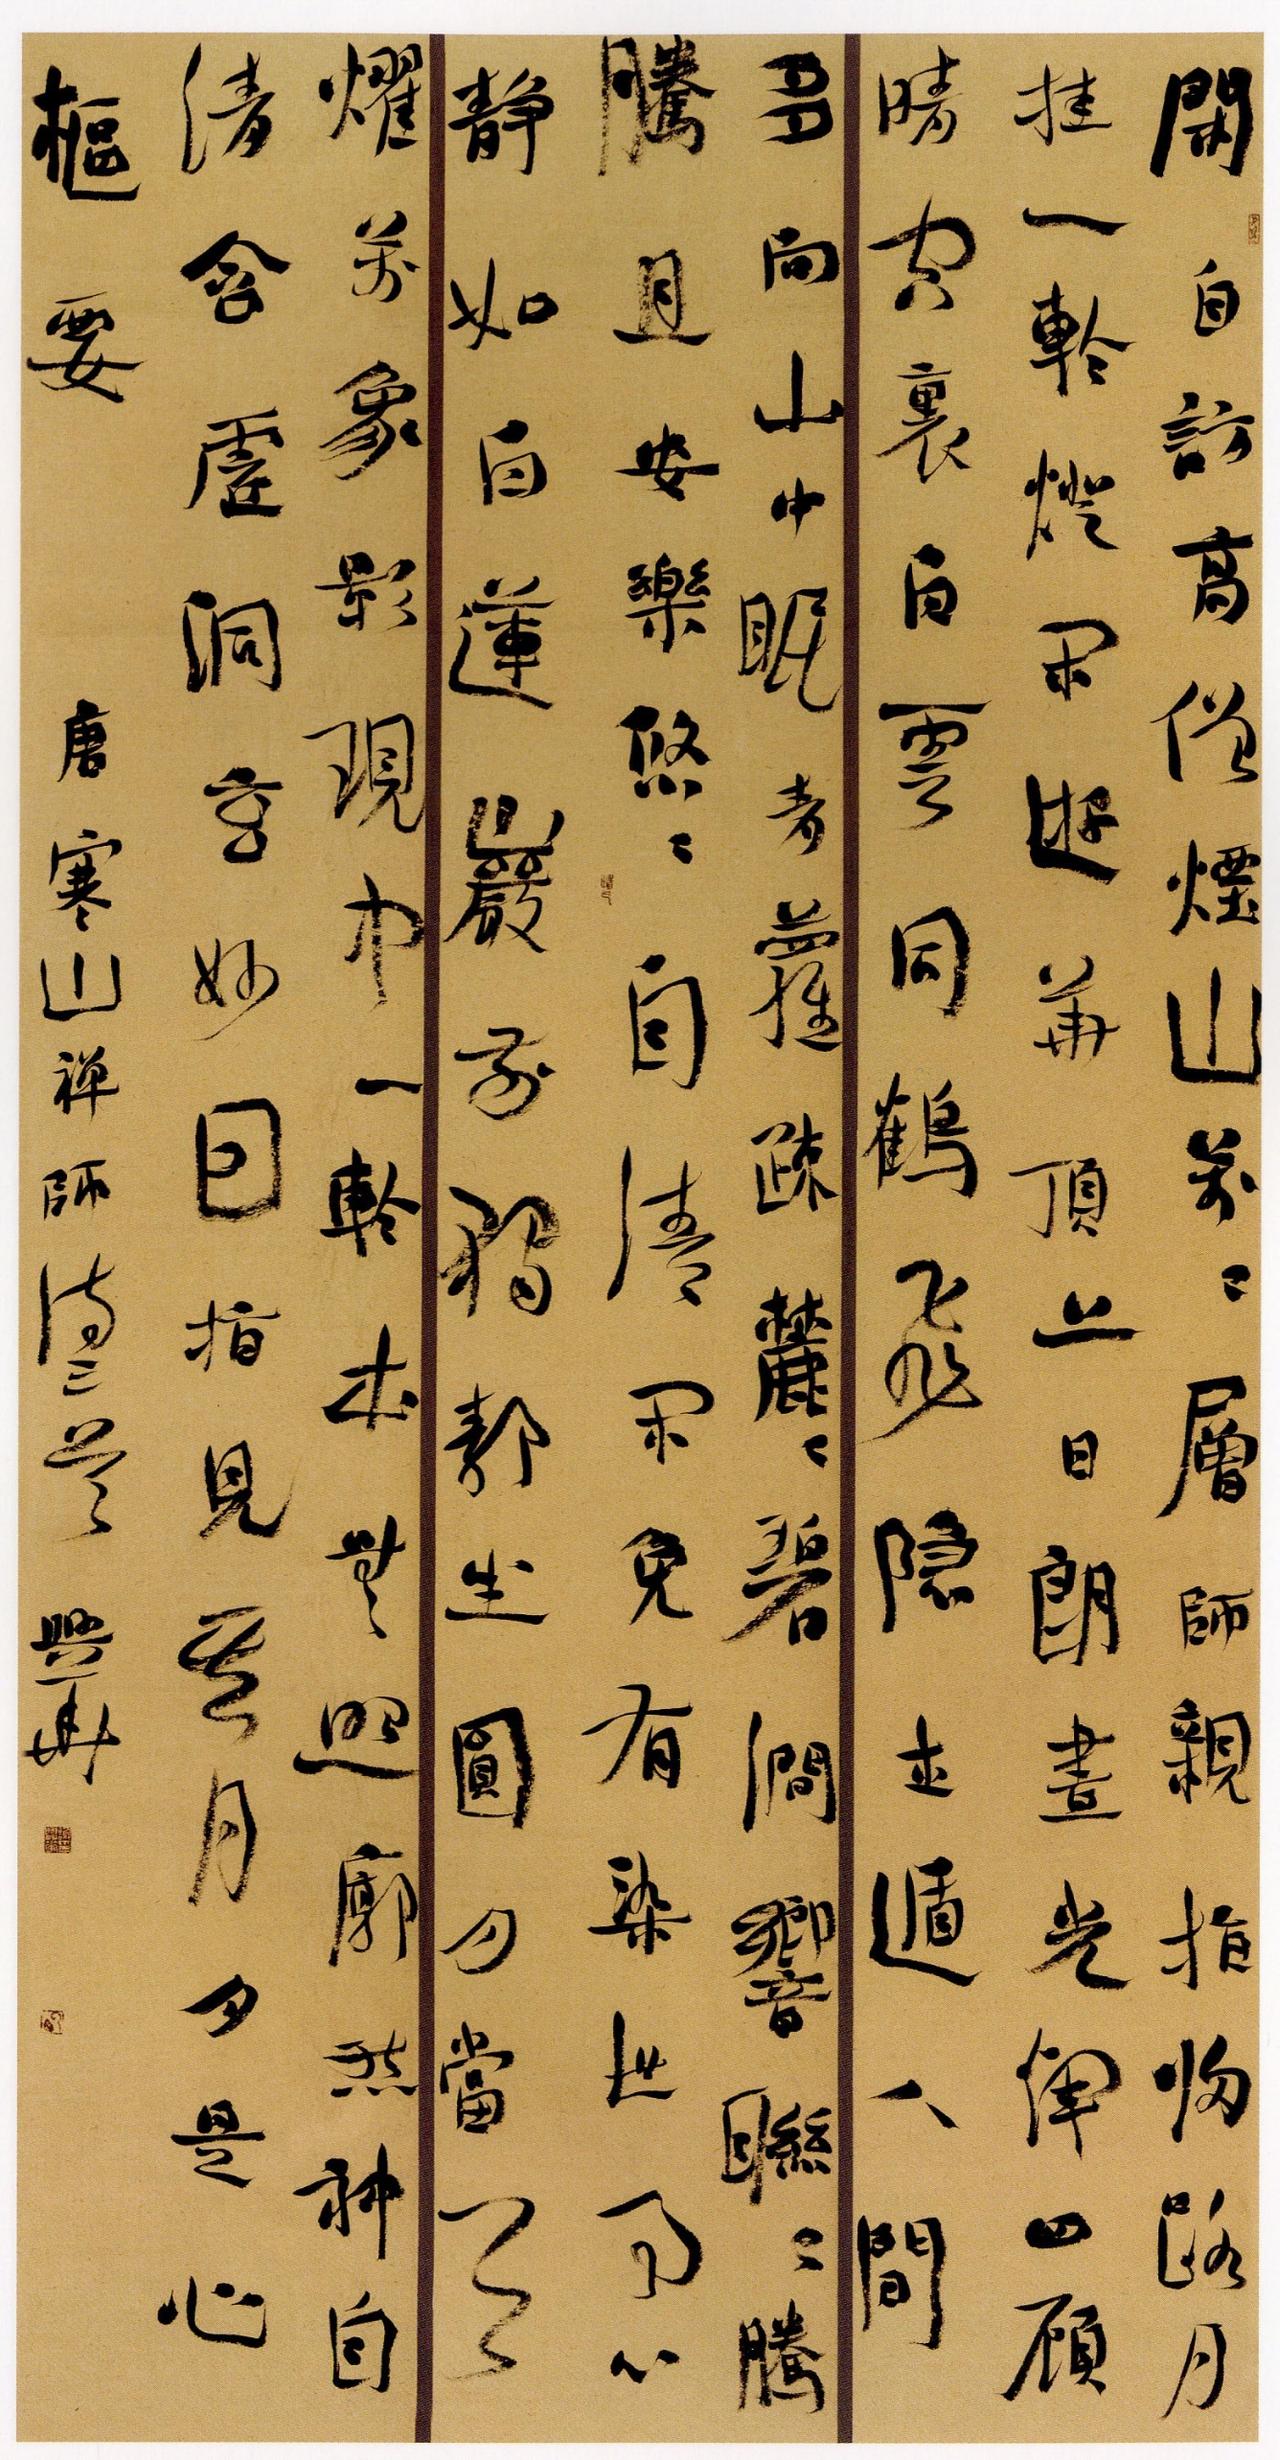 閑自訪高僧煙山萬々層師親指歸路月
挂一輪燈閑遊華頂上日朗晝光輝四顧
晴空裏白雲同鶴飛隱士遁人間
多向山中眠青蘿疎麓々碧澗響聯々騰
騰且安樂悠々自清閑免有染世事心
静如白蓮巖前獨靜坐圓月當天
耀萬象影現中一輪本無照廓然神自
清含虛洞玄妙因指見其月月是心
樞要 唐寒山禅師詩三首